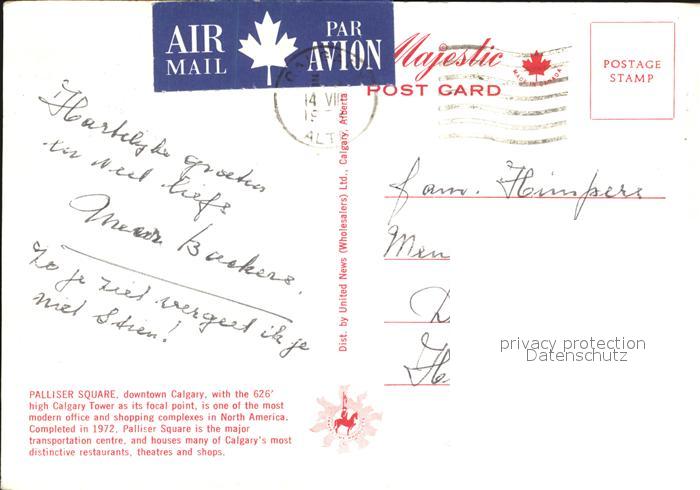 AIR MAIL
PAR AVION
Majestic
POST CARD
MADE IN CANADA
POSTAGE
STAMP
14 VII
19
ALT
Hartelijke groeten
en veel liefs
Mevr Backers.
Zo je ziet vergeet ik je
niet Stien!
Dist. by United News (Wholesalers) Ltd., Calgary, Alberta
fam. Himpers
Men
D
H
privacy protection
Datenschutz
PALLISER SQUARE, downtown Calgary, with the 626'
high Calgary Tower as its focal point, is one of the most
modern office and shopping complexes in North America.
Completed in 1972, Palliser Square is the major
transportation centre, and houses many of Calgary's most
distinctive restaurants, theatres and shops.